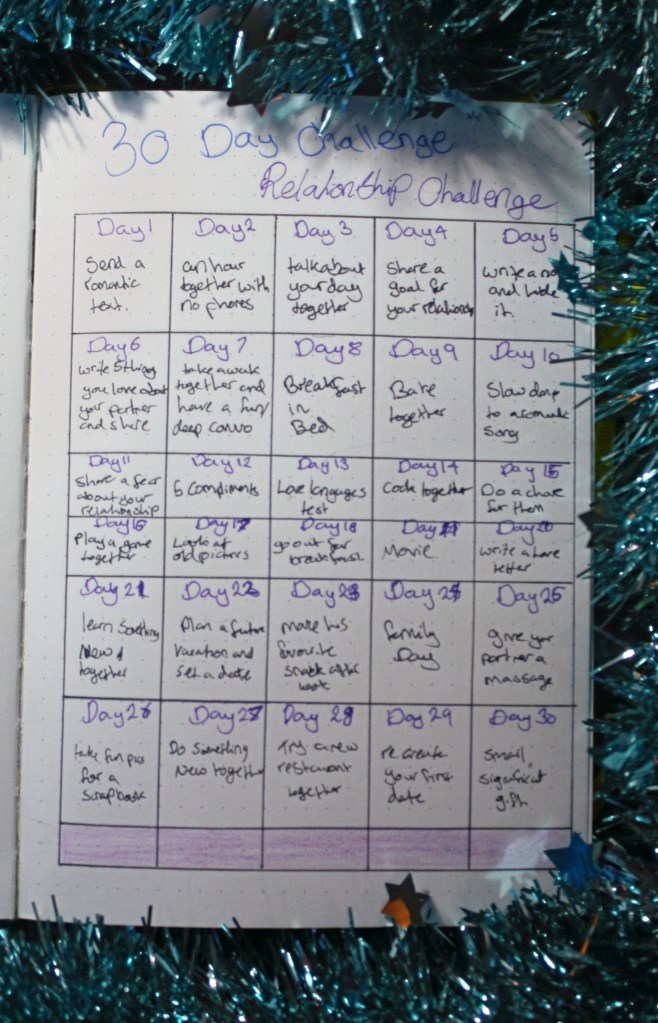 30 Day Challenge
Relationship Challenge
Day 1
Send a
romantic
text.
Day 2
an hour
together with
no phones
Day 3
talk about
your day
together
Day 4
Share a
goal for
your relationship
Day 5
write a no
and hide
it.
Day 6
write 5 things
you love about
your partner
and share
Day 7
take a walk
together and
have a fun/
deep convo
Day 8
Breakfast
in
Bed
Day 9
Bake
together
Day 10
Slow
to a romantic
Song
Day 11
Share a fear
about your
relationship
Day 12
5 compliments
Day 13
Love languages
test
Day 14
Cook together
Day 15
Do a chore
for them
Day 16
Play a game
together
Day 17
Look at
old pictures
Day 18
go out for
breakfast
Day 19
Movie
Day 20
write a love
letter
Day 21
learn something
New
together
Day 22
Plan a future
vacation and
set a date
Day 23
make his
favourite
snack after
work
Day 24
family
Day
Day 25
give your
partner a
massage
Day 26
take fun pics
for a
scrapbook
Day 27
Do something
New together
Day 28
Try a new
restaurant
together
Day 29
re create
your first
date
Day 30
Small,
significant
gift